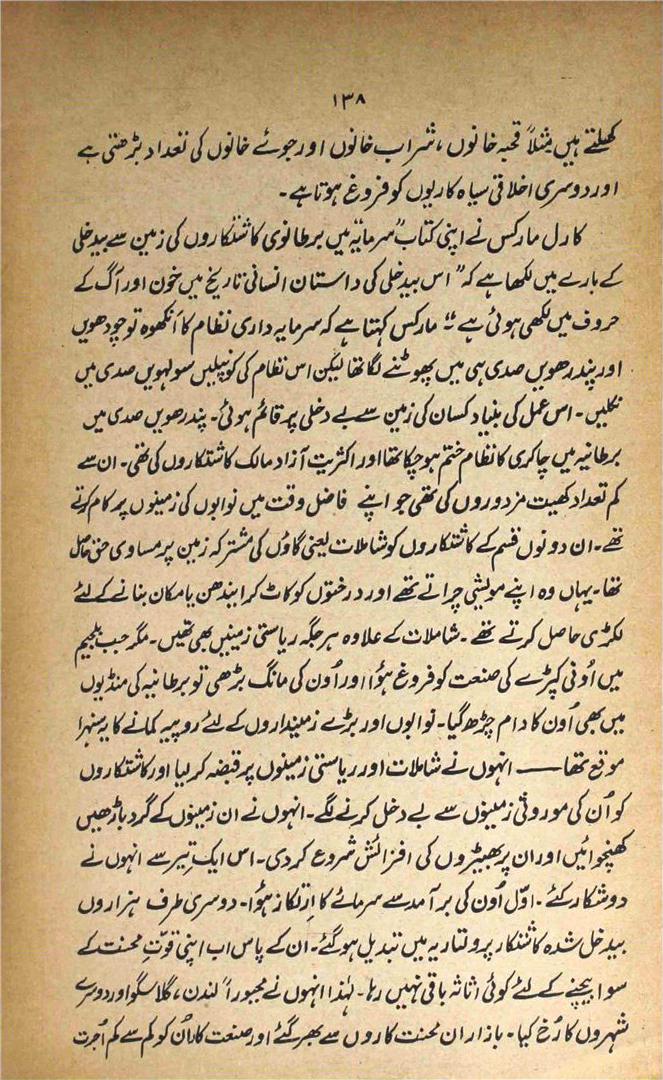 ۱۳۸
کھلتے ہیں مثلاً قحبہ خانوں، شراب خانوں اور جوئے خانوں کی تعداد بڑھتی ہے
اور دوسری اخلاقی سیاہ کاریوں کو فروغ ہوتا ہے۔
کارل مارکس نے اپنی کتاب "سرمایہ" میں برطانوی کاشتکاروں کی زمین سے بیدخلی
کے بارے میں لکھا ہے کہ "اس بیدخلی کی داستان انسانی تاریخ میں خون اور آگ کے
حروف میں لکھی ہوئی ہے"۔ مارکس کہتا ہے کہ سرمایہ داری نظام کا اَنکھوہ تو چودھویں
اور پندرھویں صدی ہی میں پھوٹنے لگا تھا لیکن اس نظام کی کونپلیں سولہویں صدی میں
نکلیں۔ اس عمل کی بنیاد کسان کی زمین سے بے دخلی پر قائم ہوئی۔ پندرھویں صدی میں
برطانیہ میں چاکری کا نظام ختم ہوچکا تھا اور اکثریت آزاد مالک کاشتکاروں کی تھی۔ ان سے
کم تعداد کھیت مزدوروں کی تھی جو اپنے فاضل وقت میں نوابوں کی زمینوں پر کام کرتے
تھے۔ ان دونوں قسم کے کاشتکاروں کو شاملات یعنی گاؤں کی مشترکہ زمین پر مساوی حق حاصل
تھا۔ یہاں وہ اپنے مویشی چراتے تھے اور درختوں کو کاٹ کر ایندھن یا مکان بنانے کے لئے
لکڑی حاصل کرتے تھے۔ شاملات کے علاوہ ہر جگہ ریاستی زمینیں بھی تھیں۔ مگر جب بلجیم
میں اُونی کپڑے کی صنعت کو فروغ ہؤا اور اُون کی مانگ بڑھی تو برطانیہ کی منڈیوں
میں بھی اُون کا دام چڑھ گیا۔ نوابوں اور بڑے زمینداروں کے لئے روپیہ کمانے کا یہ سنہرا
موقع تھا —— انہوں نے شاملات اور ریاستی زمینوں پر قبضہ کر لیا اور کاشتکاروں
کو اُن کی موروثی زمینوں سے بے دخل کرنے لگے۔ انہوں نے ان زمینوں کے گرد باڑھیں
کھنچوائیں اور ان پر بھیڑوں کی افزائش شروع کر دی۔ اس ایک تیر سے انہوں نے
دو شکار کئے۔ اوّل اُون کی برآمد سے سرمائے کا اِرتکاز ہؤا۔ دوسری طرف ہزاروں
بیدخل شدہ کاشتکار پرولتاریہ میں تبدیل ہو گئے۔ ان کے پاس اب اپنی قوّتِ محنت کے
سوا بیچنے کے لئے کوئی اثاثہ باقی نہیں رہا۔ لہٰذا انہوں نے مجبوراً لندن، گلاسگو اور دوسرے
شہروں کا رُخ کیا۔ بازار ان محنت کاروں سے بھر گئے اور صنعت کار اُن کو کم سے کم اُجرت